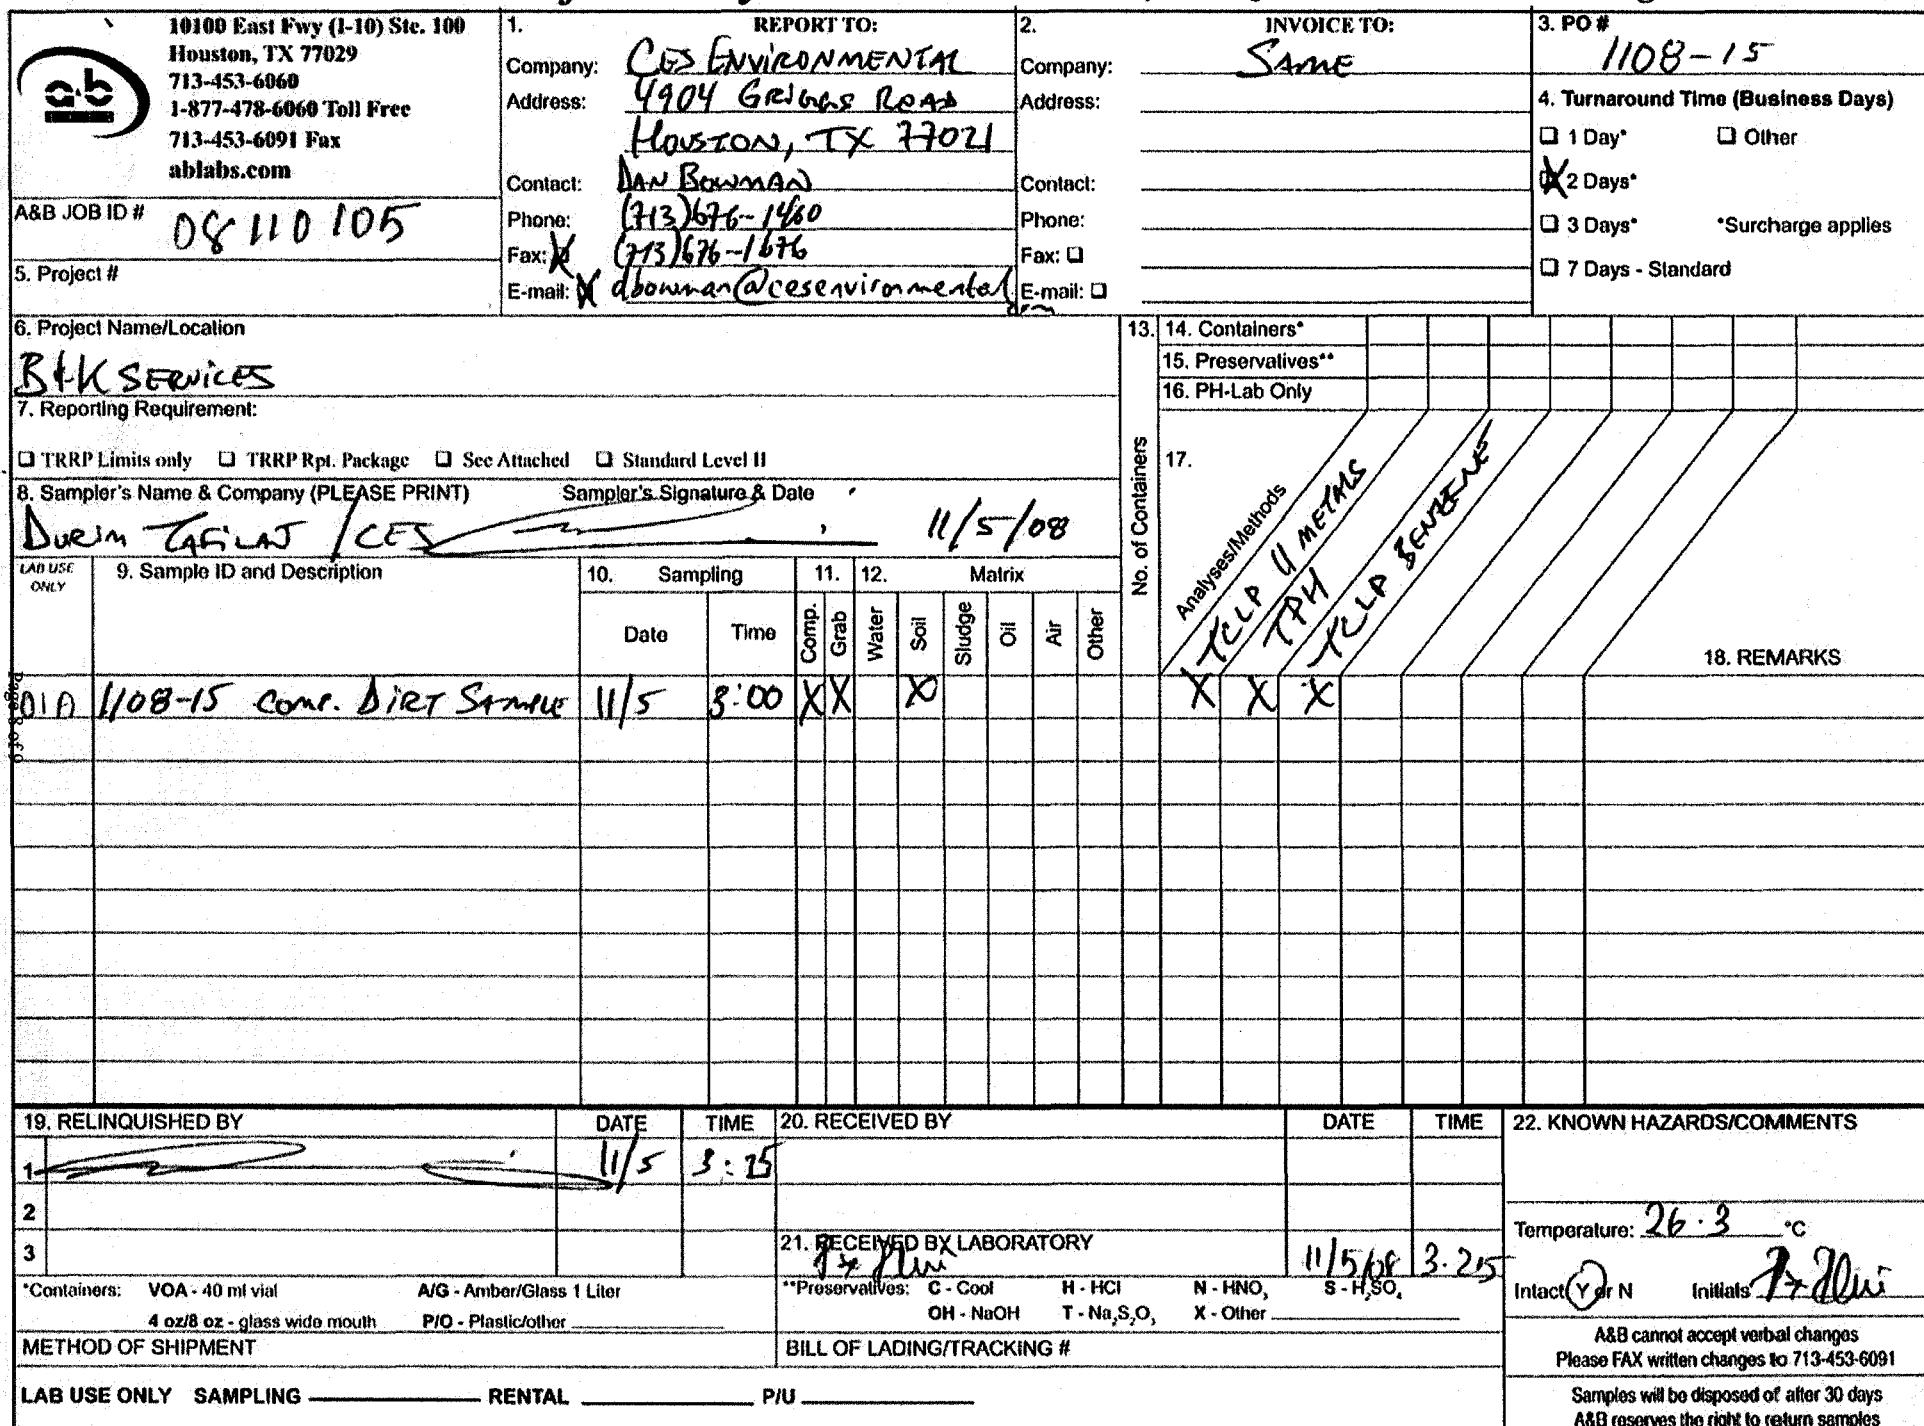 10100 East Fwy (I-10) Ste. 100
Houston, TX 77029
713-453-6060
1-877-478-6060 Toll Free
713-453-6091 Fax
ablabs.com
a&b
A&B JOB ID # 08110105
5. Project #
1. REPORT TO:
Company: CES ENVIRONMENTAL
Address: 4904 GRIGGS ROAD
HOUSTON, TX 77021
Contact: DAN BOWMAN
Phone: (713)676-1460
Fax: X (713)676-1676
E-mail: X dbowman@cesenvironmental
2. INVOICE TO:
Company: SAME
Address:
Contact:
Phone:
Fax: ☐
E-mail: ☐
3. PO #
1108-15
4. Turnaround Time (Business Days)
☐ 1 Day* ☐ Other
X 2 Days*
☐ 3 Days* *Surcharge applies
☐ 7 Days - Standard
6. Project Name/Location
B&K SERVICES
7. Reporting Requirement:
☐ TRRP Limits only ☐ TRRP Rpt. Package ☐ See Attached ☐ Standard Level II
8. Sampler's Name & Company (PLEASE PRINT) Sampler's Signature & Date
DURIM TAFILAJ / CES 11/5/08
13. No. of Containers
14. Containers*
15. Preservatives**
16. PH-Lab Only
17. Analyses/Methods
TCLP 11 METALS
TPH
TCLP BENZENE
18. REMARKS
LAB USE ONLY
9. Sample ID and Description
10. Sampling
Date Time
11. Comp. Grab
12. Matrix
Water Soil Sludge Oil Air Other
01A 1108-15 COMP. DIRT SAMPLE 11/5 3:00 X X X X X X
19. RELINQUISHED BY DATE TIME
1 11/5 3:25
2
3
20. RECEIVED BY DATE TIME
21. RECEIVED BY LABORATORY 11/5/08 3.25
22. KNOWN HAZARDS/COMMENTS
Temperature: 26.3 °C
Intact Y or N Initials
*Containers: VOA - 40 ml vial A/G - Amber/Glass 1 Liter
4 oz/8 oz - glass wide mouth P/O - Plastic/other
**Preservatives: C - Cool H - HCl N - HNO₃ S - H₂SO₄
OH - NaOH T - Na₂S₂O₃ X - Other
METHOD OF SHIPMENT
BILL OF LADING/TRACKING #
A&B cannot accept verbal changes
Please FAX written changes to 713-453-6091
LAB USE ONLY SAMPLING RENTAL P/U
Samples will be disposed of after 30 days
A&B reserves the right to return samples